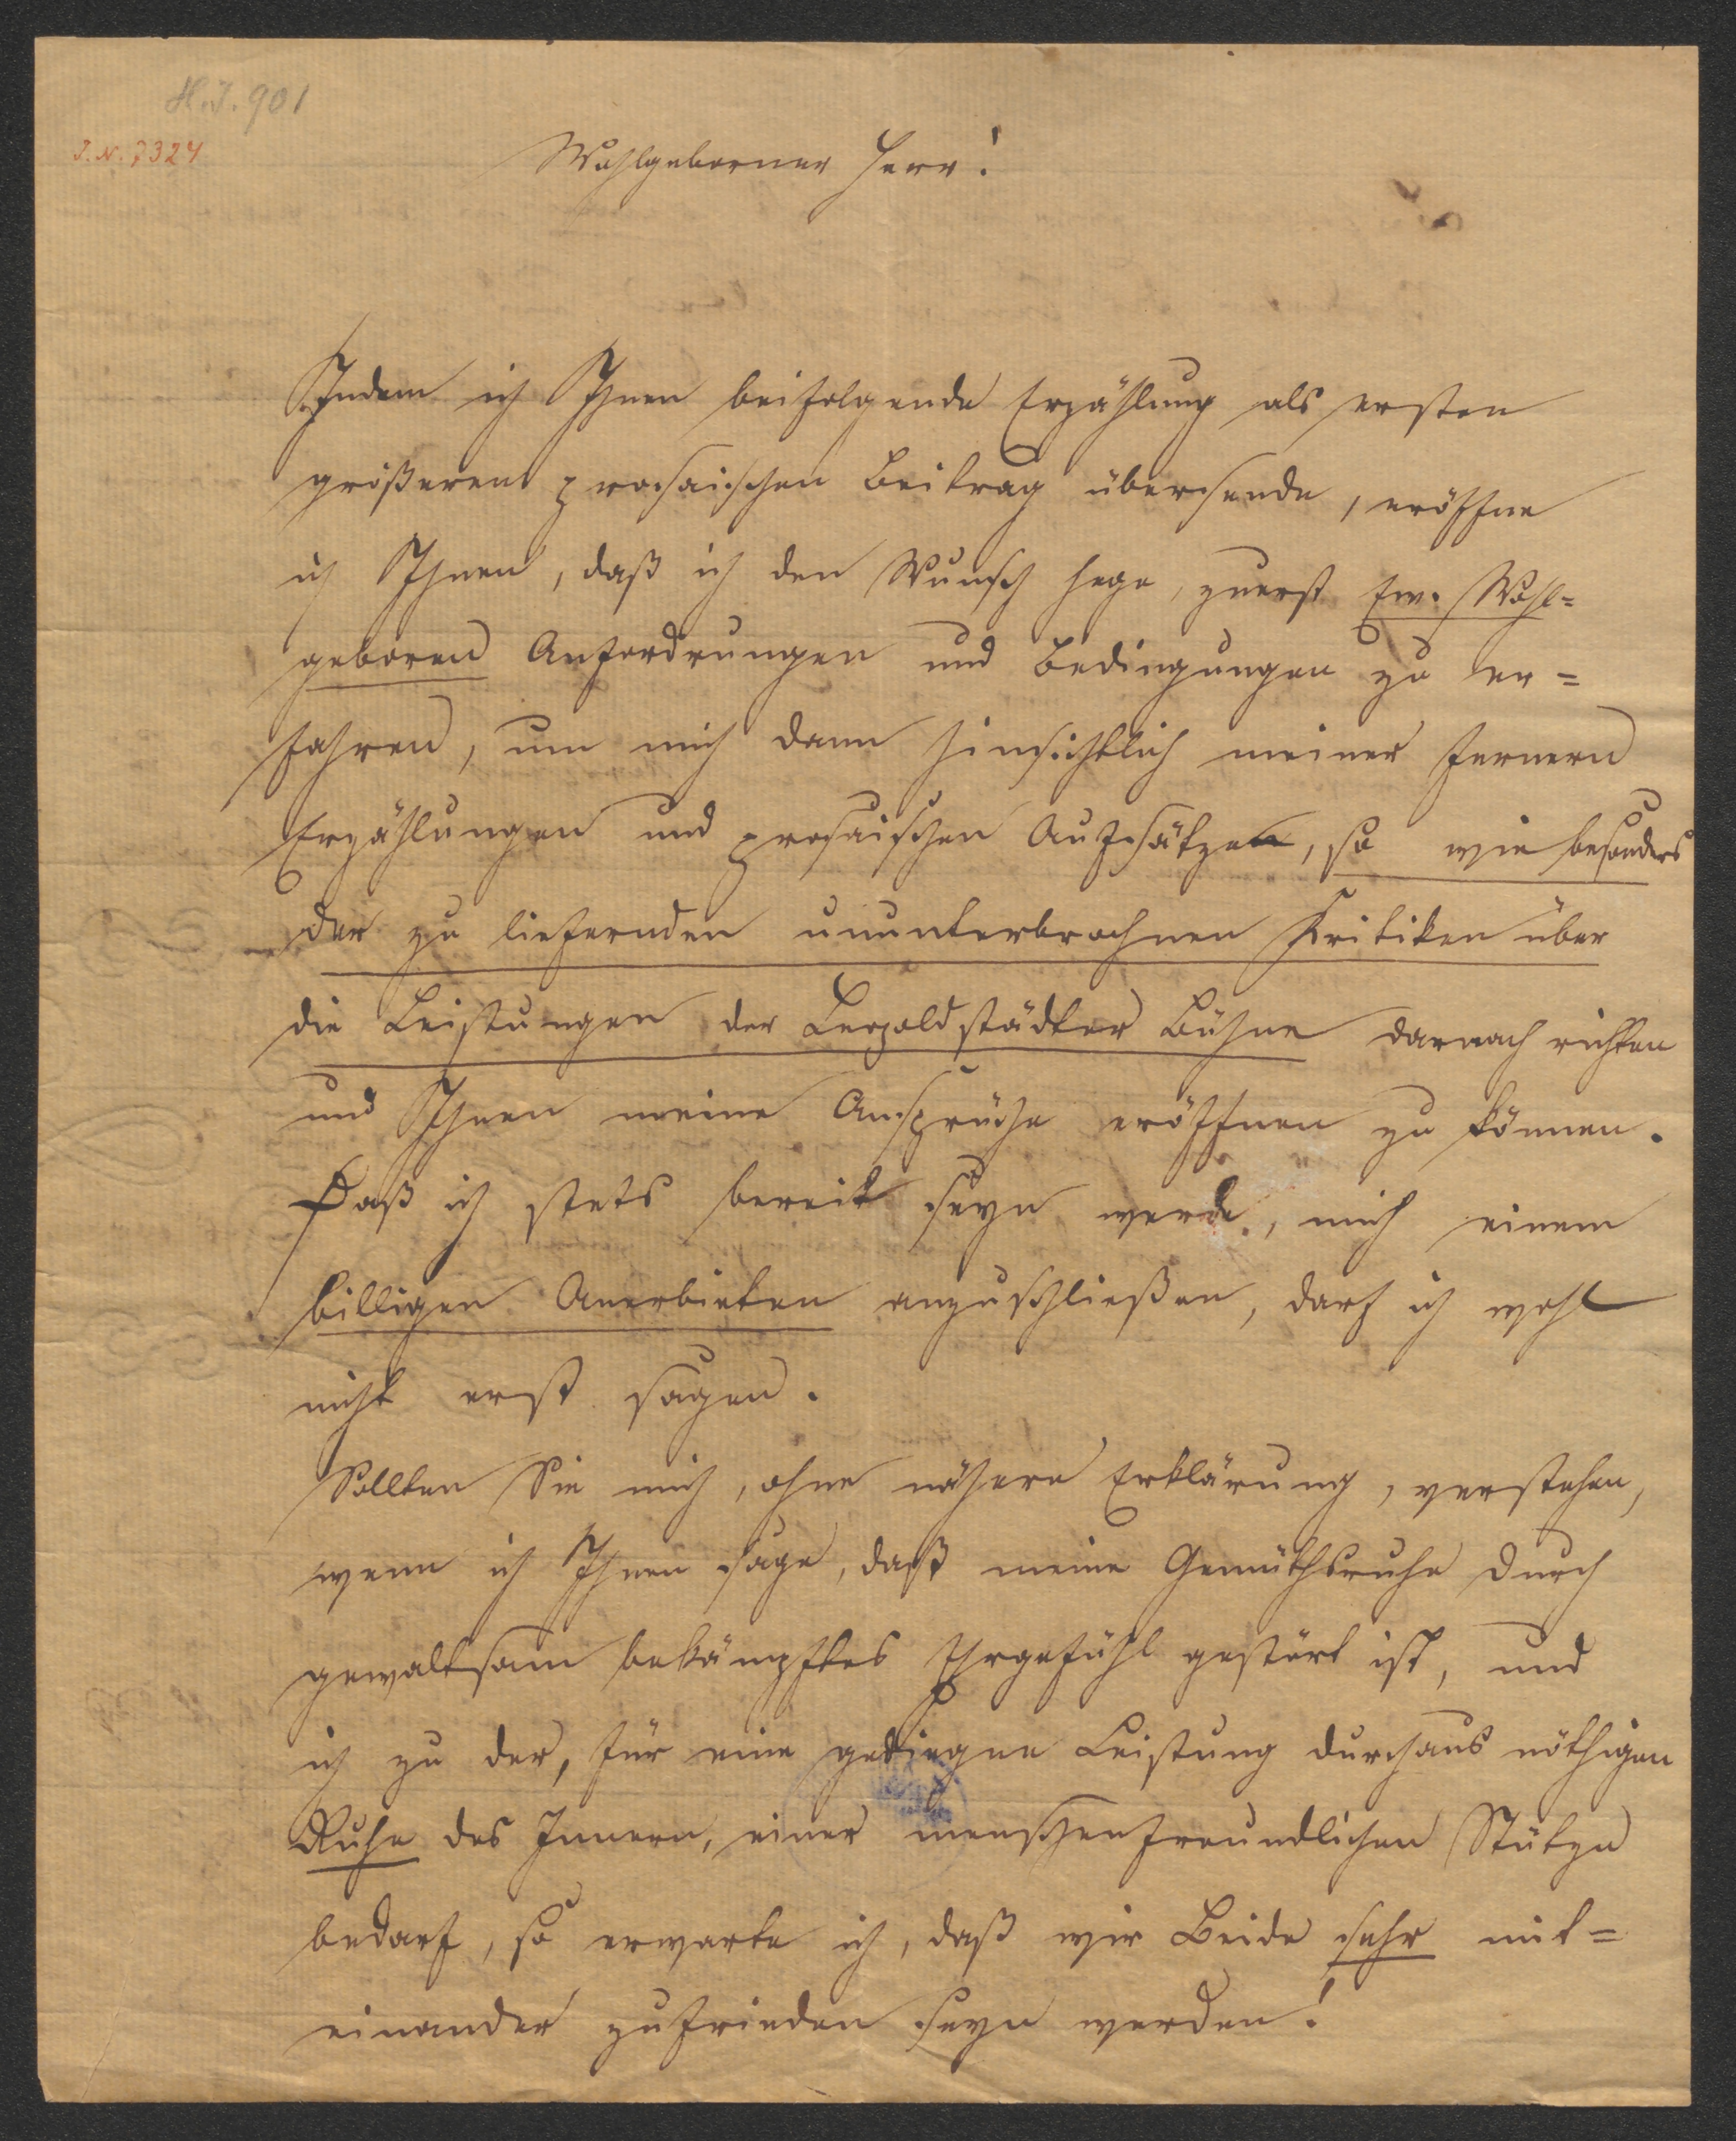 H.I. 901
I.N. 7324
Wohlgeborner Herr!
Indem ich Ihnen beifolgende Erzählung als ersten
größeren prosaischen Beitrag übersende, eröffne
ich Ihnen, daß ich den Wunsch hege, zuerst Ew. Wohl=
geboren Anfordrungen und Bedingungen zu er=
fahren, um mich dann hinsichtlich meiner fernern
Erzählungen und prosaischen Aufsätzen, so wie besonders
der zu liefernden ununterbrochnen Kritiken über
die Leistungen der Leopoldstädter Bühne darnach richten
und Ihnen meine Ansprüche eröffnen zu können.
Daß ich stets bereit seyn werde, mich einem
billigen Anerbieten anzuschließen, darf ich wohl
nicht erst sagen.
Sollten Sie mich, ohne nähere Erklärung, verstehen,
wenn ich Ihnen sage, daß meine Gemüthsruhe durch
gewaltsam bekämpftes Ehrgefühl gestört ist, und
ich zu der, für eine gediegne Leistung durchaus nöthigen
Ruhe des Innern, einer menschenfreundlichen Stütze
bedarf, so erwarte ich, daß wir Beide sehr mit=
einander zufrieden seyn werden!